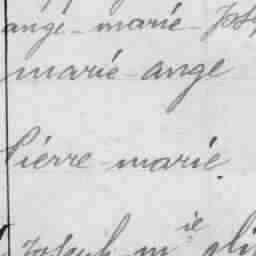 ange - marie - Jos
marie - ange
Pierre - marie.
Joseph m ie